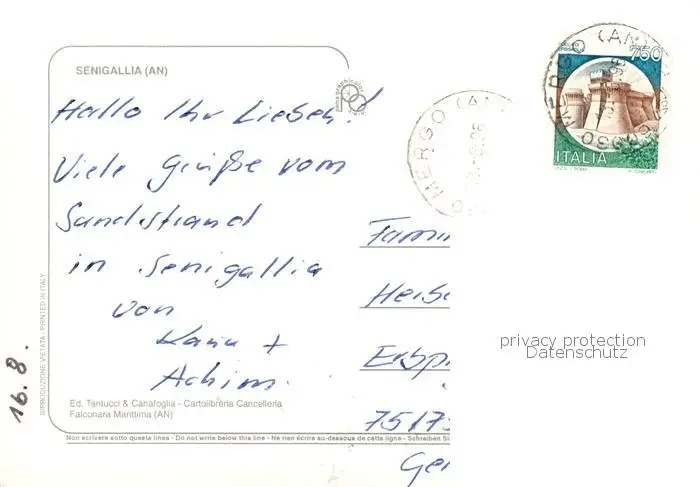 SENIGALLIA (AN)
Hallo Ihr Lieben!
Viele Grüße vom
Sandstrand
in Senigallia
von
Karin +
Achim.
16.8.
Ed. Tantucci & Canafoglia - Cartolibreria Cancelleria
Falconara Marittima (AN)
RIPRODUZIONE VIETATA - PRINTED IN ITALY
Non scrivere sotto questa linea - Do not write below this line - Ne rien écrire au-dessous de cette ligne - Schreiben Si
750
ITALIA
MERGO (AN)
MERGO (AN)
Famil
Heibe
Erbp
75173
Ger
privacy protection
Datenschutz